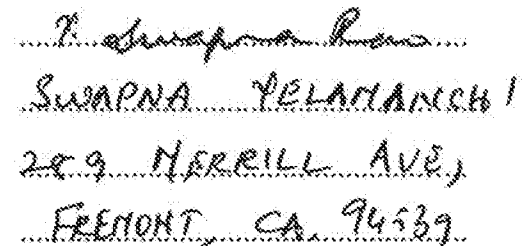 Y. Swapna Rao
SWAPNA YELAMANCHI
289 MERRILL AVE,
FREMONT, CA. 94539